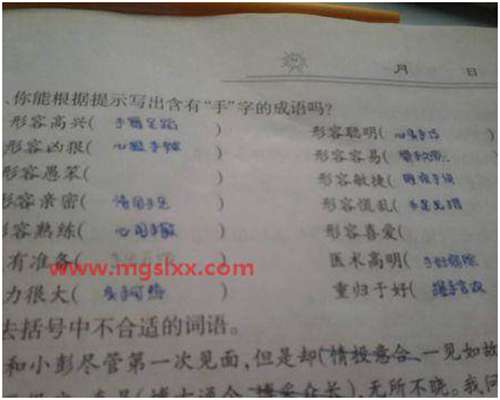 月 日
、你能根据提示写出含有“手”字的成语吗?
形容高兴( 手舞足蹈 ) 形容聪明( 心灵手巧
形容凶狠( 心狠手辣 ) 形容容易(
形容愚笨( ) 形容敏捷( 眼疾手快
形容亲密( 情同手足 ) 形容慌乱( 手忙脚乱
容熟练( ) 形容喜爱(
有准备( ) 医术高明( 手到病除
www.mgslxx.com
力很大( ) 重归于好( 握手言欢
去括号中不合适的词语。
和小彭尽管第一次见面,但是却(情投意合、一见如故
(博大通今 博采众长),无所不晓。我问